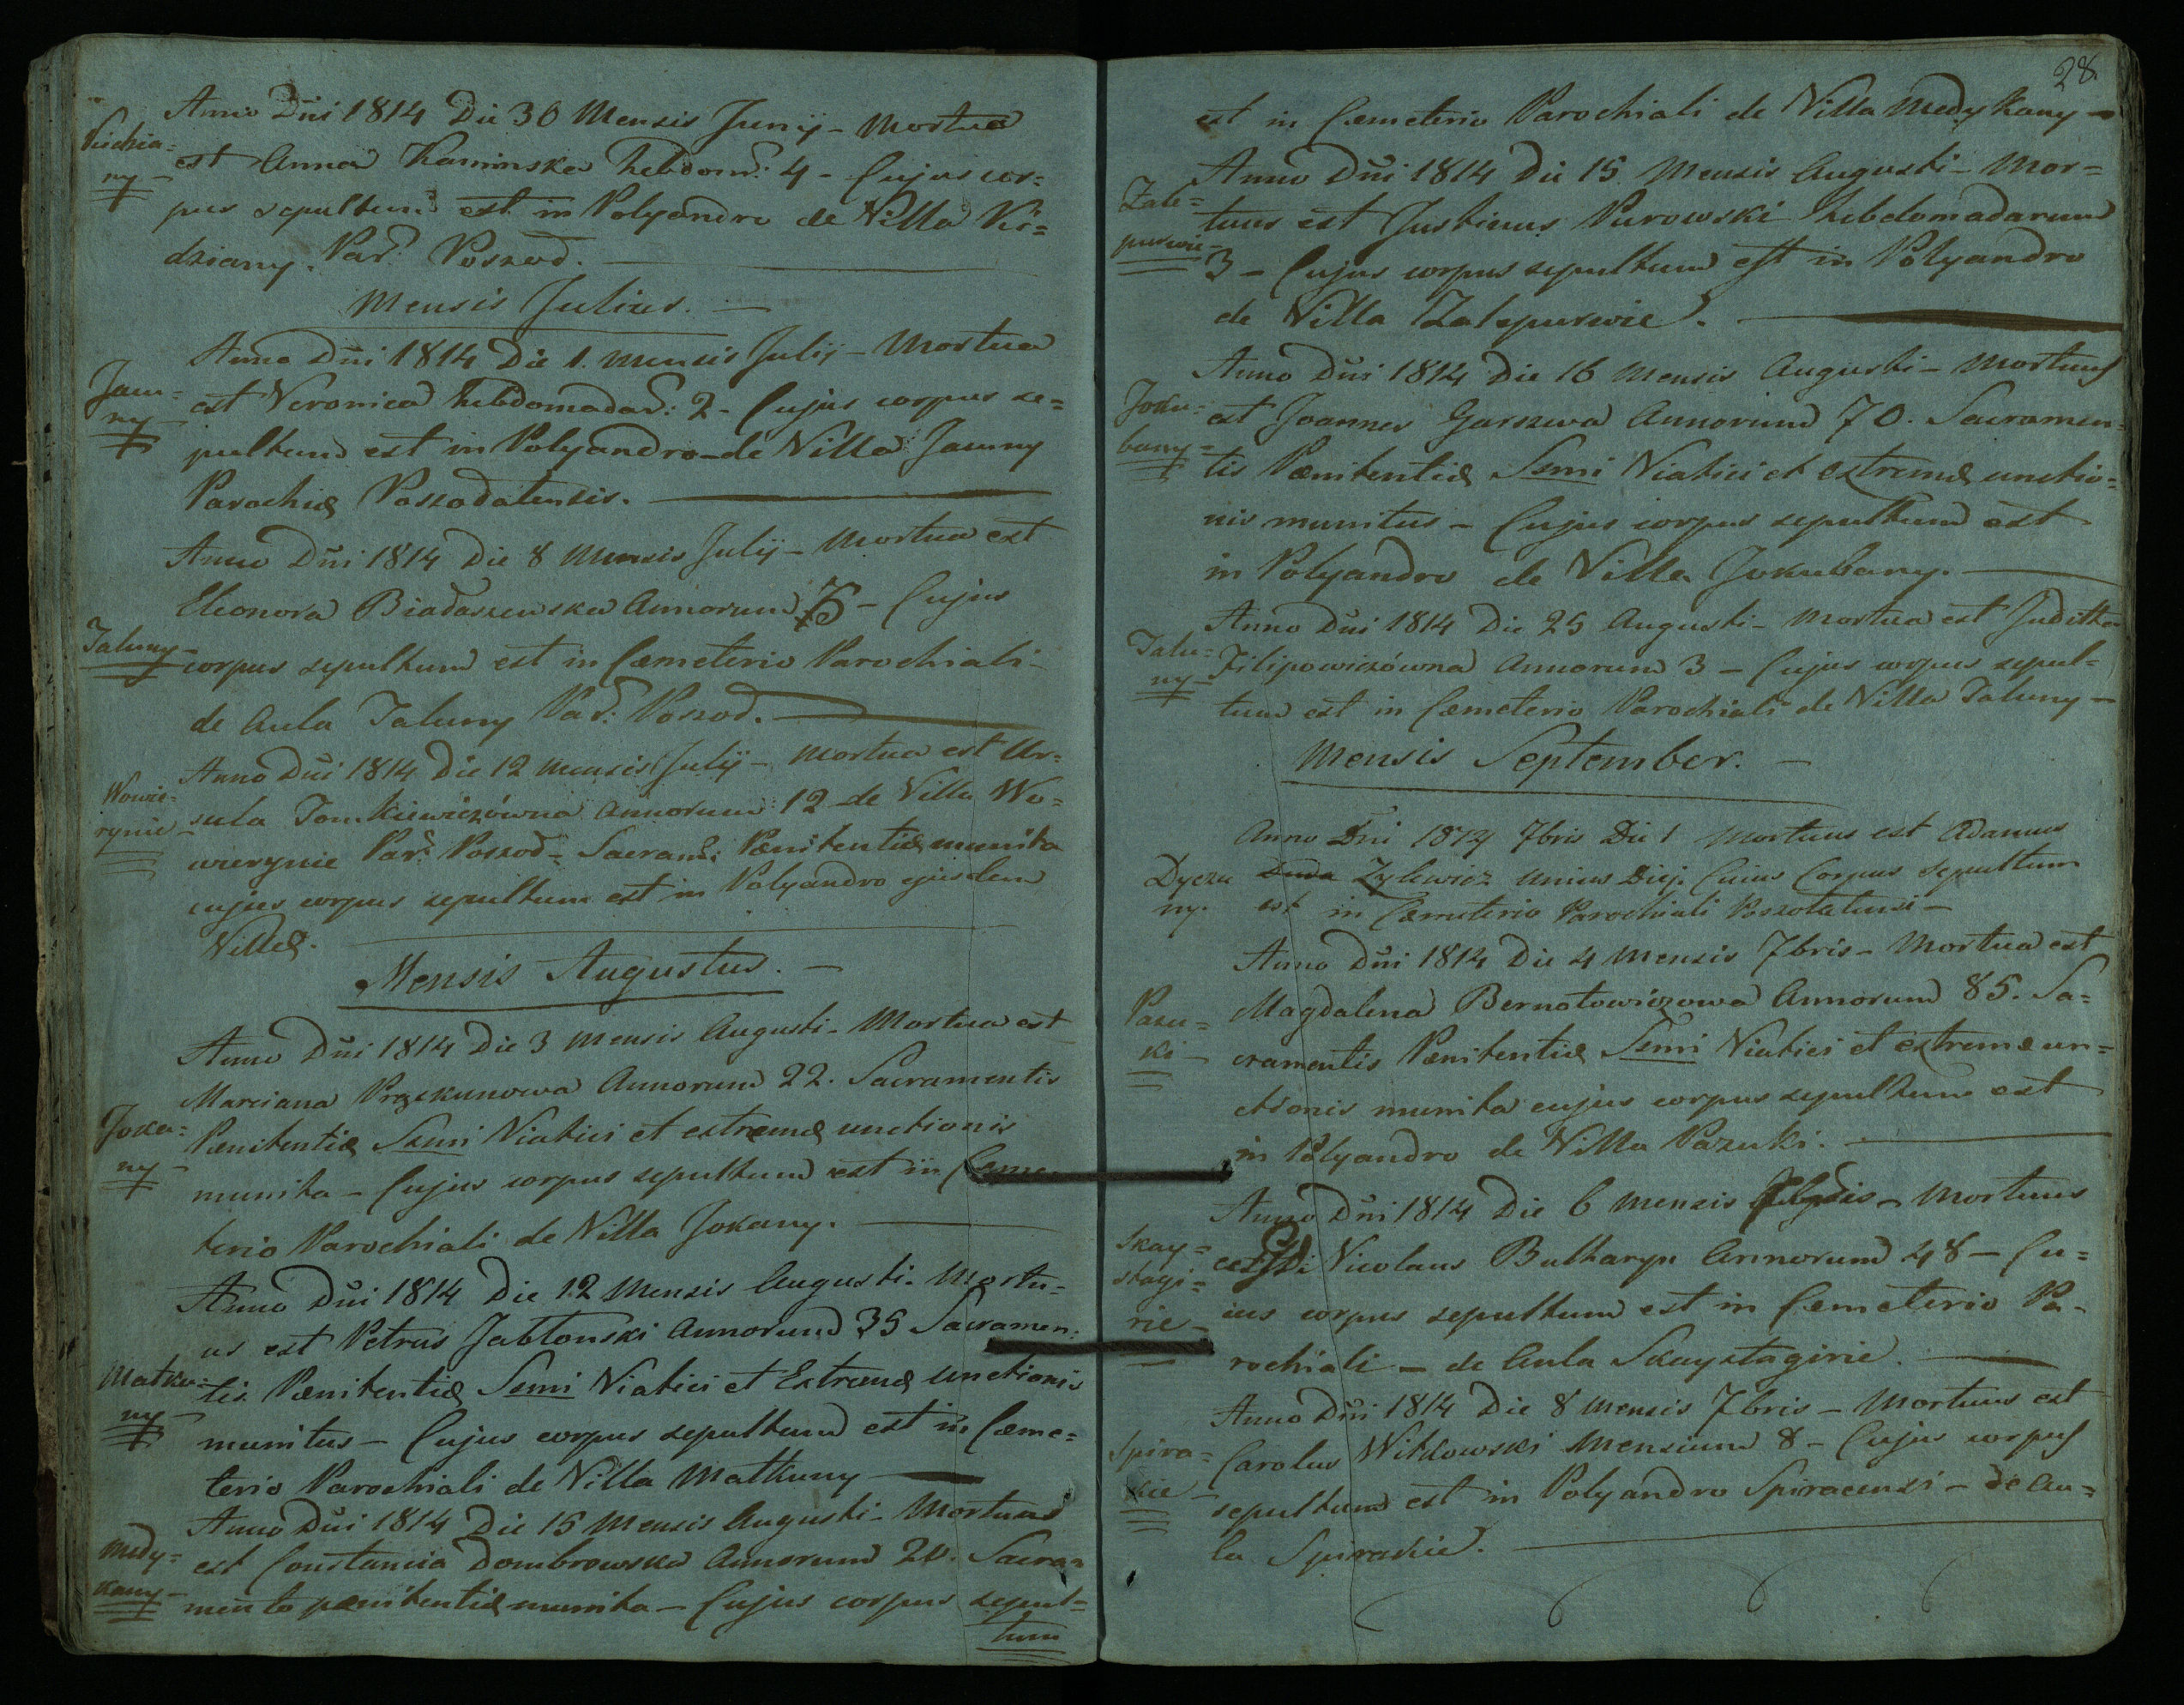 Anno Dñi 1814 Die 30 Mensis Junij - Mortua
ny -
est Anna Kaminska hebdom: 4 - Cujus cor=
pus sepultum est in Polyandro de Villa Ki=
dziany. Par: Poszod. -
Mensis Julius. -
Anno Dñi 1814 Die 1. Mensis Julij - Mortua
Jau=
ny
est Veronica hebdomadar: 2 - Cujus corpus se=
pultum est in Polyandro de Villa Jauny
Parochiæ Poszodatensis.
Anno Dñi 1814 Die 8 Mensis Julij - Mortua est
Eleonora Annorum - Cujus
Taluny -
corpus sepultum est in Cæmeterio Parochiali -
de Aula Taluny Par: Poszod.
Anno Dñi 1814 Die 12 Mensis Julij - Mortua est Ur=
Wowie=
rynie -
sula Tomkiewiczówna Annorum 12 de Villa Wo=
wierynie Par: Poszod - Sacram: Pænitentiæ munita
cujus corpus sepultum est in Polyandro ejusdem
Villæ.
Mensis Augustus. -
Anno Dñi 1814 Die 3 Mensis Augusti - Mortua est
Marciana Annorum 22. Sacramentis
Joka=
ny -
Pænitentiæ Ssmi Viatici et extremæ unctionis
munita - Cujus corpus sepultum est in Cæme=
terio Parochiali de Villa Jokany.
Anno Dñi 1814 Die 12 Mensis Augusti - Mortu=
us est Petrus Jabłonski Annorum 35 Sacramen=
Matku=
ny
tis Pænitentiæ Ssmi Viatici et Extremæ unctionis
munitus - Cujus corpus sepultum est in Cæme=
terio Parochiali de Villa Matkuny
Anno Dñi 1814 Die 15 Mensis Augusti - Mortua
Medy=
kany -
est Constancia Dombrowska Annorum 20. Sacra=
mento pænitentiæ munita - Cujus corpus sepul=
tum
28
est in Cæmeterio Parochiali de Villa Medykany -
Anno Dñi 1814 Die 15 Mensis Augusti - Mor=
Zale=
purwie -
tuus est Justinus Purowski hebdomadarum
3 - Cujus corpus sepultum est in Polyandro
de Villa Zalepurwie.
Anno Dñi 1814 Die 16 Mensis Augusti - Mortuus
Joku=
bany =
est Joannes Garszwa Annorum 70. Sacramen=
tis Pænitentiæ Ssmi Viatici et extremæ unctio=
nis munitus - Cujus corpus sepultum est
in Polyandro de Villa Jokubany.
Anno Dñi 1814 Die 25 Augusti - Mortua est Juditha
Talu=
ny -
Filipowiczówna Annorum 3 - Cujus corpus sepul=
tum est in Cæmeterio Parochiali de Villa Taluny -
Mensis September. -
Anno Dni 1814 7bris Die 1 Mortuus est Adamus
Dyczu
ny.
Zylewicz unius Diej. Cuius Corpus Sepultum
est in Cæmeterio Parochiali Poszotatensi -
Anno Dñi 1814 Die 4 Mensis 7bris - Mortua est
Pazu=
ki -
Magdalena Bernatowiczowa Annorum 85. Sa=
cramentis Pænitentiæ Ssmi Viatici et extremæ un=
ctionis munita cujus corpus sepultum est
in Polyandro de Villa Pazuki.
Anno Dni 1814 Die 6 Mensis - Mortuus
Skay=
stagi=
rie -
Nicolaus Butharyn Annorum 48 - Cu=
ius corpus sepultum est in Cæmeterio Pa=
rochiali - de Aula Skaystagirie.
Anno Dñi 1814 Die 8 Mensis 7bris - Mortuus est
Spira=
kie -
Carolus Witkowski Mensium 8 - Cujus corpus
sepultum est in Polyandro Spiracensi - de Au=
la Spirakie.